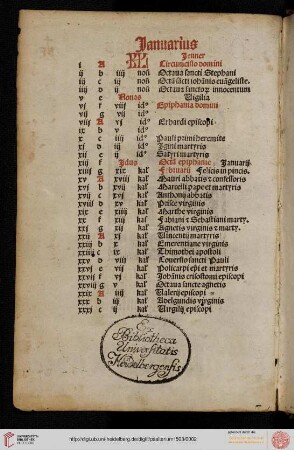 Januarius
KL Jenner
i A Circuncisio domini
ij b iiij noñ Octaua sancti Stephani
iij c iij noñ Octa sācti iohānis euāgeliste.
iiij d ij noñ Octaua sanctoꝝ innocentum
v e Nonas Vigilia
vj f viij idꝰ Epiphania domini
vij g vij idꝰ
viij A vj idꝰ Erhardi episcopi
ix b v idꝰ
x c iiij idꝰ Pauli primi heremite
xj d iij idꝰ Igini martyris
xij e ij idꝰ Satyri martyris
xiij f Idus Octa epiphanie Januarij.
xiiij g xix kaꝉ Februarij Felicis in pincis.
xv A xviij kaꝉ Mauri abbatis et confessoris
xvj b xvij kaꝉ Marcelli pape et martyris
xvij c xvj kaꝉ Anthonij abbatis
xviij d xv kaꝉ Prisce virginis
xix e xiiij kaꝉ Marthe virginis
xx f xiij kaꝉ Fabiani et Sebastiani marty.
xxj g xij kaꝉ Agnetis virginis et marty.
xxij A xj kaꝉ Vincentij martyris
xxiij b x kaꝉ Emerentiane virginis
xxiiij c ix kaꝉ Thimothei apostoli
xxv d viij kaꝉ Conuersio sancti Pauli
xxvj e vij kaꝉ Policarpi epi et martyris
xxvij f vj kaꝉ Johānis crisostomi episcopi
xxviij g v kaꝉ Octaua sancte agnetis
xxix A iiij kaꝉ Valerij episcopi
xxx b iij kaꝉ Adelgundis virginis
xxxj c ij kaꝉ Virgilij episcopi
Ex
Bibliotheca
Universitatis
Heidelbergensis
UNIVERSITÄTS-
BIBLIOTHEK
HEIDELBERG
http://digi.ub.uni-heidelberg.de/diglit/psalterium1503/0002